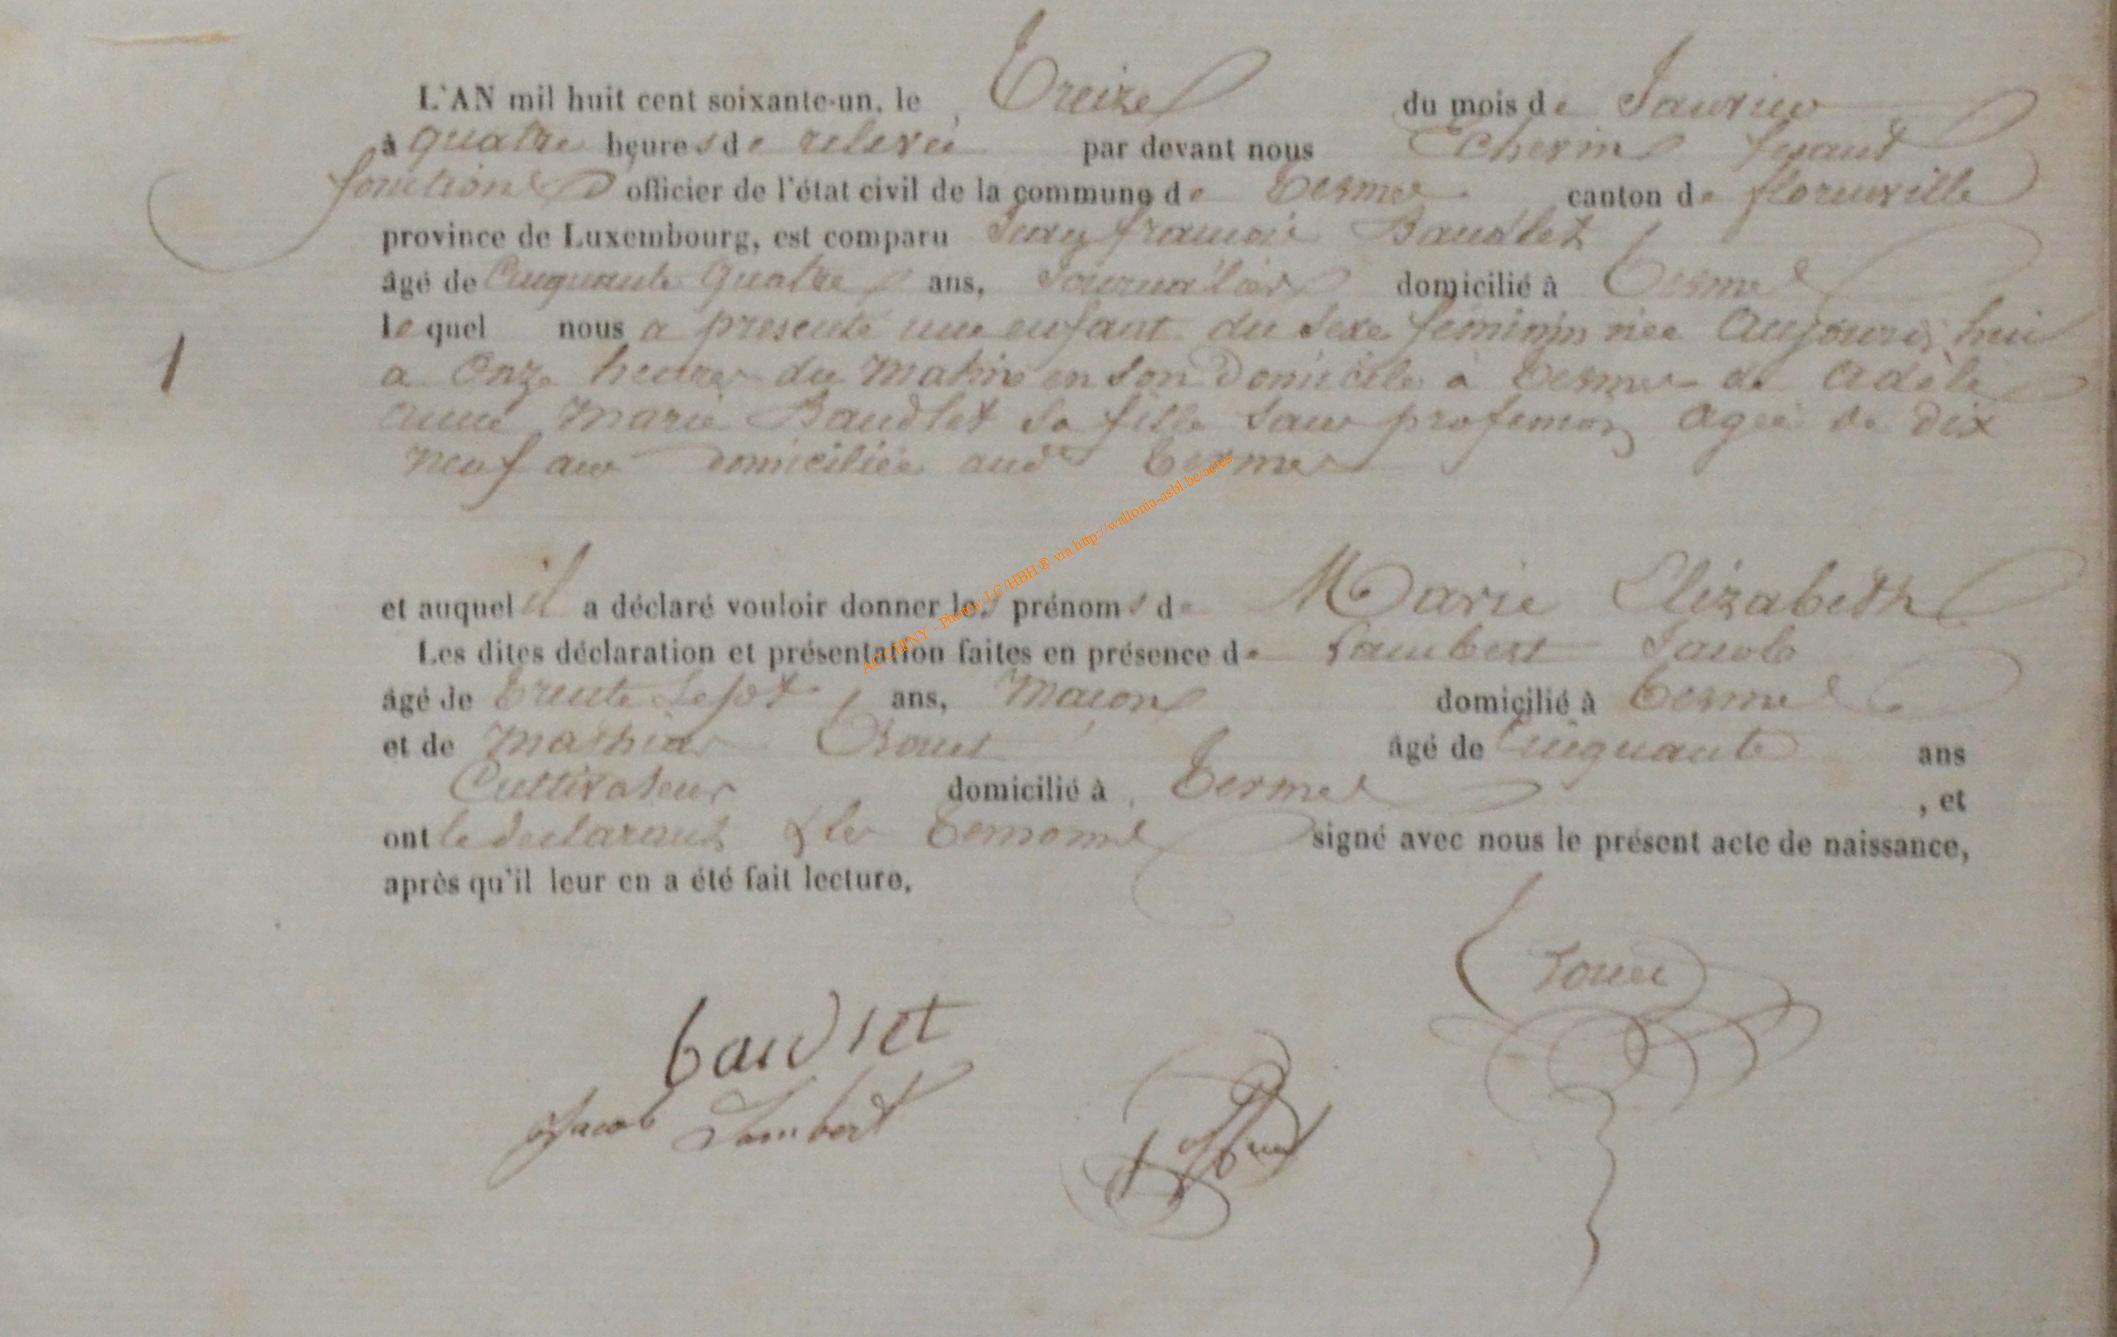 L'AN mil huit cent soixante-un, le Treize du mois de Janvier
à quatre heures de relevée par devant nous Echevin fesant
fonctions D'officier de l'état civil de la commune de Termes canton de florenville
province de Luxembourg, est comparu Jean françois Baudlet
âgé de Cinquante Quatre ans, Journalier domicilié à Termes
le quel nous a presenté une enfant du sexe féminin née aujourd'hui
a onze heures du matin en son Domicile à Termes de Adèle
anne Marie Baudlet sa fille sans profession agée de dix
neuf ans domiciliée aud Termes
et auquel il a déclaré vouloir donner les prénoms de Marie Elizabeth
Les dites déclaration et présentation faites en présence de Lambert Jacob
âgé de trente sept ans, Macon domicilié à Termes
1
et de Mathias âgé de Cinquante ans
Cultivateur domicilié à Termes , et
ont le declarant & les temoins signé avec nous le présent acte de naissance,
après qu'il leur en a été fait lecture.
baudlet
Jacob Lambert
ACCHINY - Photos LC/HBH® via http://wallonia-asbl.be/actes